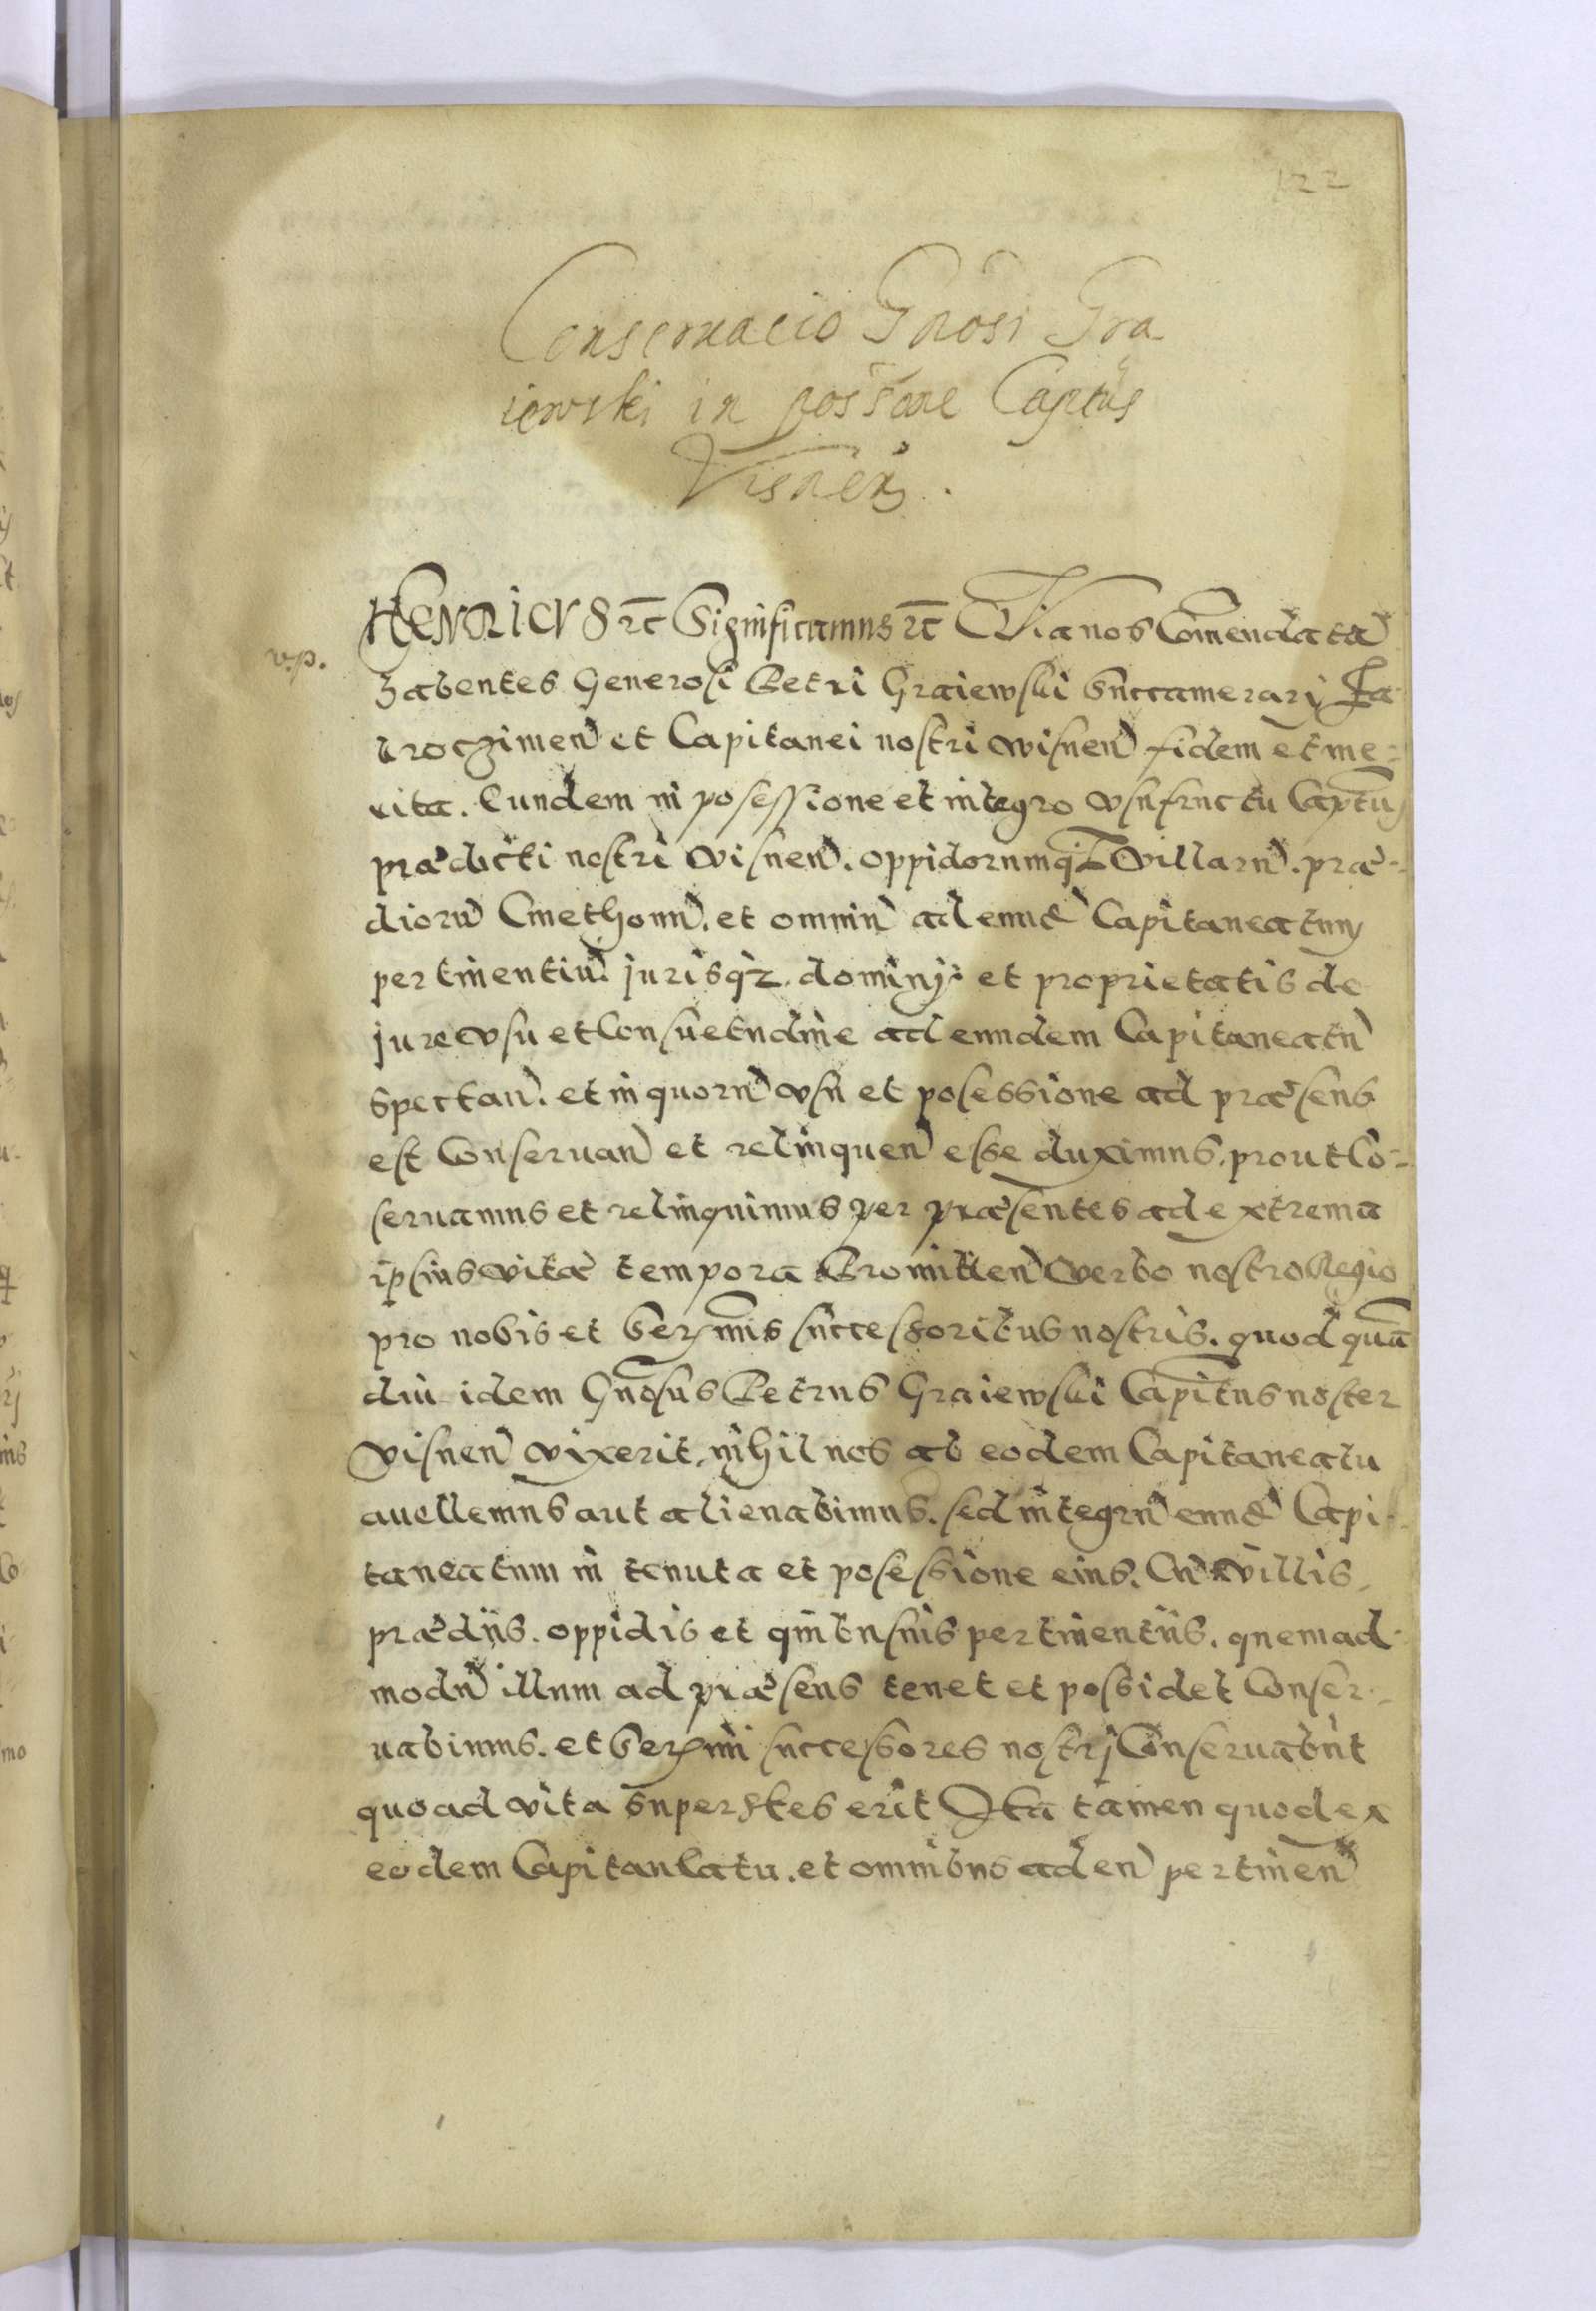 122
Conservacio Gnosi Gra
iewski in possone Captus
Visnen.
HENRICVS etc Significamus etc Quia nos Comendata
v.p.
habentes Generosi Petri Graiewski Succamerarij
et Capitanei nostri wisnen fidem et me-
rita. Eundem in posessione et integro vsufructu Captus
prædicti nostri visnen. oppidorumq3 villaru. præ-
dioru Cmethonu. et omniu ad eunde Capitaneatum
pertinentiu. jurisq3. dominij et proprietatis de
jure vsu et Consuetudine ad eundem Capitaneatu
spectan. et in quoru vsu et posessione ad præsens
est Conseruan et relinquen esse duximus. prout Co-
seruamus et relinquimus per præsentes ad extrema
ipsius vitæ tempora Promitten verbo nostro Regio
pro nobis et Sermis successoribus nostris. quod qua
diu idem Gnosus Petrus Graiewski Capitus noster
visnen vixerit, nihil nos ab eodem Capitaneatu
auellemus aut alienabimus. sed integru eunde Capi-
taneatum in tenuta et posessione eius. Cu villis,
prædiis. oppidis et quibusuis pertinentiis. quemad-
modu illum ad præsens tenet et possidet Conser-
uabimus. et Sermi successores nostrj Conseruabut
quoad vita superstes erit Ita tamen quod ex
eodem Capitaneatu. et omnibus ad eu pertinen